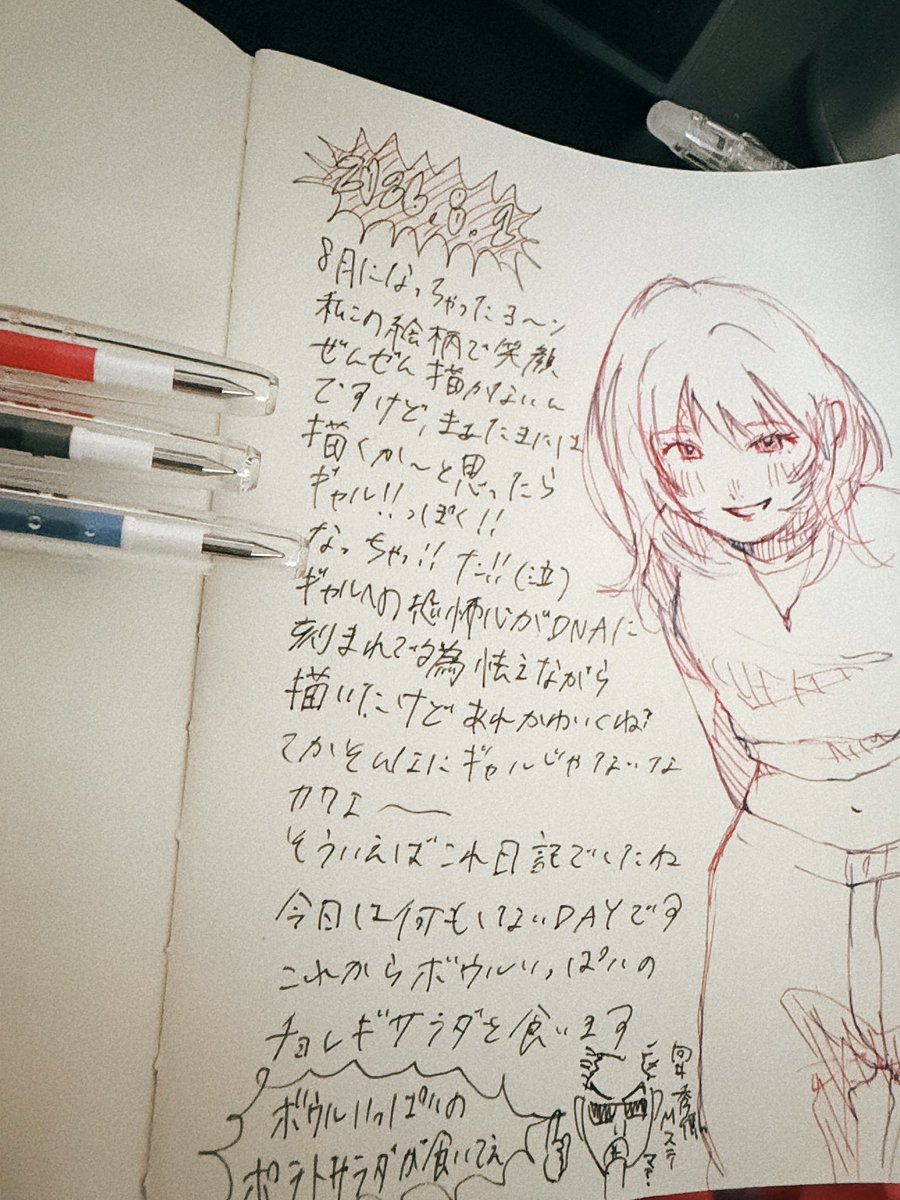 2026.8.1
8月になっちゃったヨ〜ン
私この絵柄で笑顔
ぜんぜん描かないん
ですけど、まあたまには
描くか〜と思ったら
ギャル!!っぽく!!
なっちゃっ!! た!!(泣)
ギャルへの恐怖心がDNAに
刻まれてる為怯えながら
描いたけどあれかわいくね?
てかそんなにギャルじゃないな
カワエ〜
そういえばこれ日記でしたね
今日は何もしないDAYです
これからボウルいっぱいの
チョレギサラダを食います
ボウルいっぱいの
ポテトサラダが食いてえ
向井秀徳